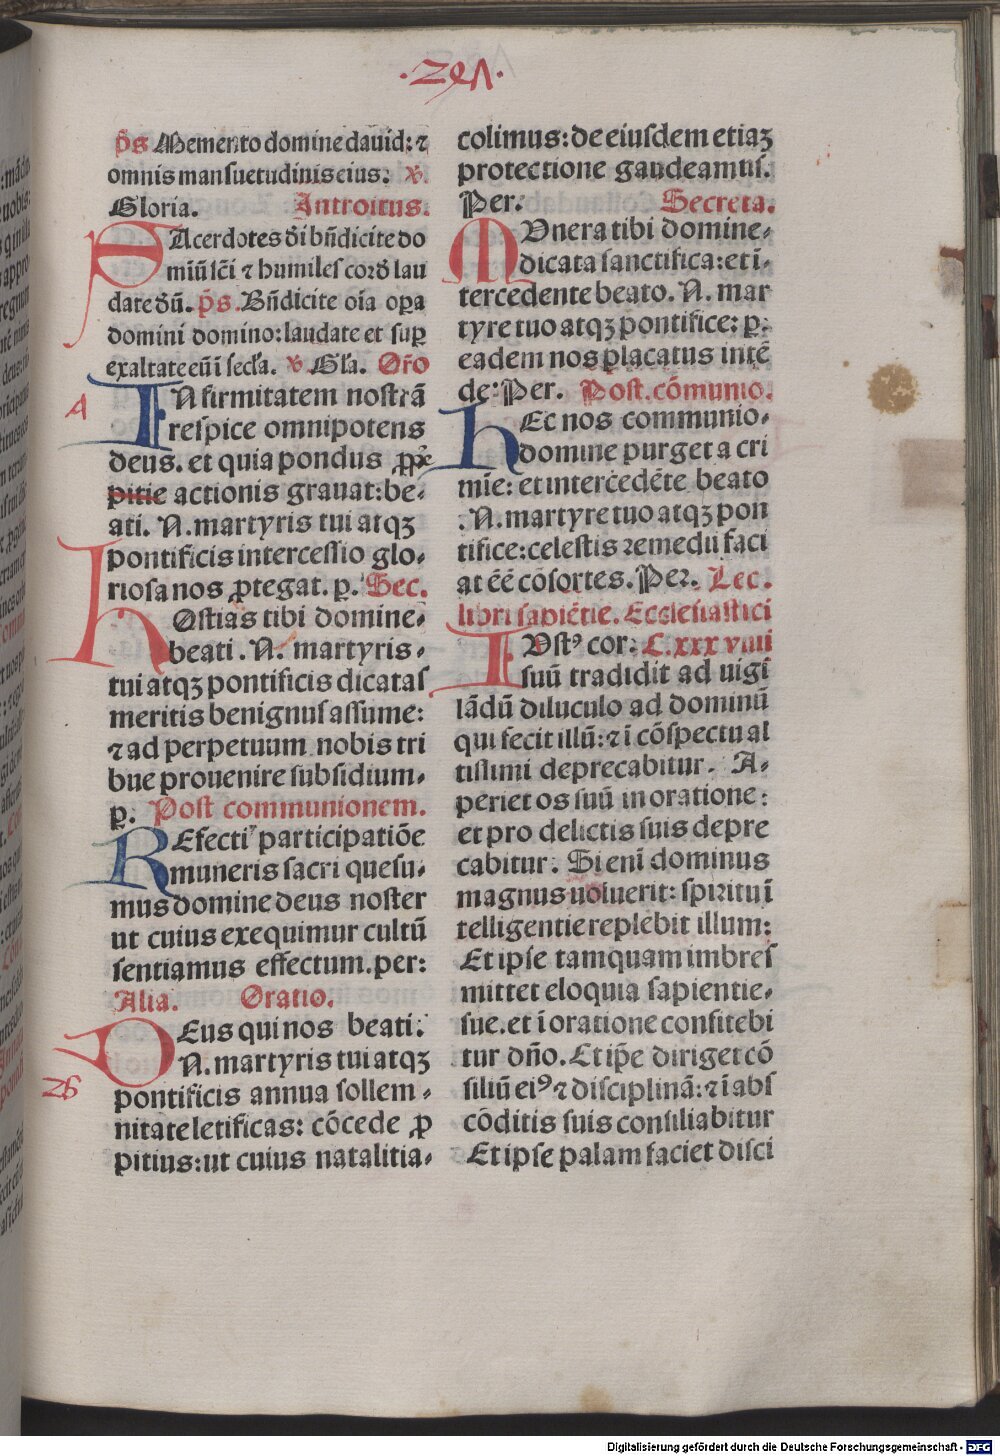 ·291·
p̄s Memento domine dauid: ⁊
omnis mansuetudinis eius. ℣.
Gloria. Introitus.
SAcerdotes dī bn̄dicite do
minū sc̄i ⁊ humiles cord̄ lau
date dūm. p̄s. Bn̄dicite oīa oꝑa
domini domino: laudate et suꝑ
exaltate eū ī secl̄a. ℣ Gl̄a. Or̄o
A
INfirmitatem nostrā
respice omnipotens
deus. et quia pondus ꝓp̄e
pitie actionis grauat: be-
ati. N. martyris tui atqꝫ
pontificis intercessio glo-
riosa nos ꝓtegat. p. Sec.
HOstias tibi domine-
beati. N. martyris-
tui atqꝫ pontificis dicatas
meritis benignus assume:
⁊ ad perpetuum nobis tri
bue prouenire subsidium-
p. Post communionem.
REfecti participatiōe
muneris sacri quesu-
mus domine deus noster
ut cuius exequimur cultū
sentiamus effectum. per:
Alia. Oratio.
DEus qui nos beati:
N. martyris tui atqꝫ
26
pontificis annua sollem-
nitate letificas: cōcede ꝓ
pitius: ut cuius natalitia-
colimus: de eiusdem etiaꝫ
protectione gaudeamus.
Per. Secreta.
MUnera tibi domine-
dicata sanctifica: et ī-
tercedente beato. N. mar
tyre tuo atqꝫ pontifice: p.
eadem nos placatus intē
de: Per. Post. cōmunio.
HEc nos communio-
domine purget a cri
mīe: et intercedēte beato
.N. martyre tuo atqꝫ pon
tifice: celestis remedii faci
at ēē cōsortes. Per. Lec.
libri sapiētie. Ecclesiastici
IUstꝰ cor: C.xxxviiii
suū tradidit ad uigi
lādū diluculo ad dominū
qui fecit illū: ⁊ ī cōspectu al
tissimi deprecabitur. A-
periet os suū in oratione:
et pro delictis suis depre
cabitur. Si enī dominus
magnus uoluerit: spiritu ī
telligentie replebit illum:
Et ipse tamquam imbres
mittet eloquia sapientie-
sue. et ī oratione confitebi
tur dn̄o. Et ip̄e diriget cō
siliū eiꝰ ⁊ disciplinā: ⁊ ī abs
cōditis suis consiliabitur
Et ipse palam faciet disci
Digitalisierung gefördert durch die Deutsche Forschungsgemeinschaft - DFG